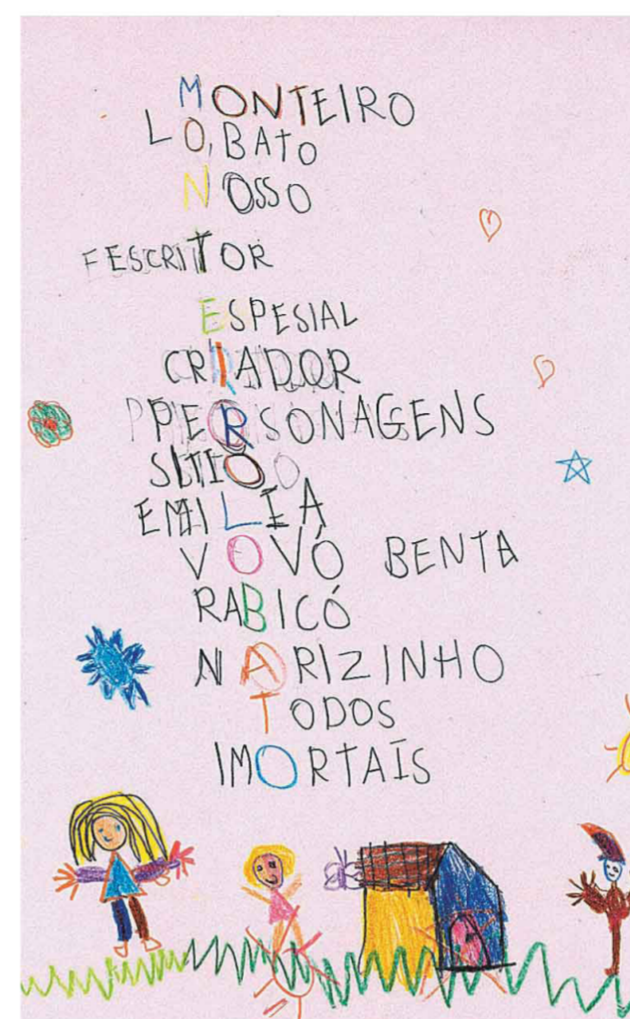 MONTEIRO
LOBATO
NOSSO
FESCRITOR
ESPESIAL
CRIADOR
PERSONAGENS
SITIO
EMILIA
VOVÓ BENTA
RABICÓ
NARIZINHO
TODOS
IMORTAIS